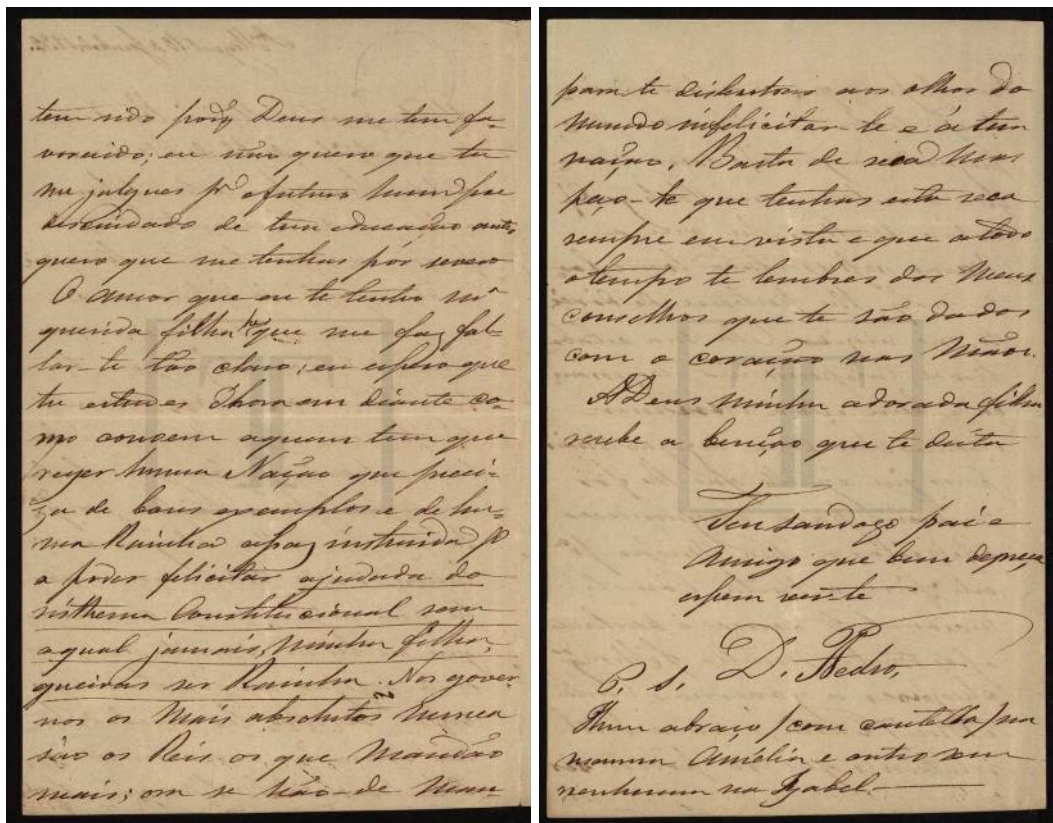 tem sido porq̃ Deus me tem fa-
vorecido; eu não quero que tu
me julgues pª o futuro hum pae
descuidado de tua educação antes
quero que me tenhas por severo
O amor que eu te tenho mª
querida filha he que me faz fal-
lar-te tão claro; eu espero que
tu estudes d'hora em diante co-
mo convem aquem tem que
reger huma Nação que preci-
za de bons exemplos e de hu-
ma Rainha assaz instruida pª
a poder felicitar ajudada do
sisthema Constitucional sem
aqual jamais, minha filha,
queiras ser Rainha. Nos gover-
nos os mais absolutos nunca
são os Reis os que mandão
mais; ora se hão-de man
para te
mundo felicitar-te e á tua
nação. Basta de seca mas
peço-te que tenhas esta seca
sempre em vista e que atodo
otempo te lembres dos meus
conselhos que te são dados
com o coração nas mãos.
ADeus minha adorada filha
recebe a benção que te deita
Teu saudozo pai e
amigo que bem depreça
espera ver-te
D. Pedro,
P. S.
Hum abraço /com cautella/ na
mamma Amélia e outro sem
nenhuma na Izabel.